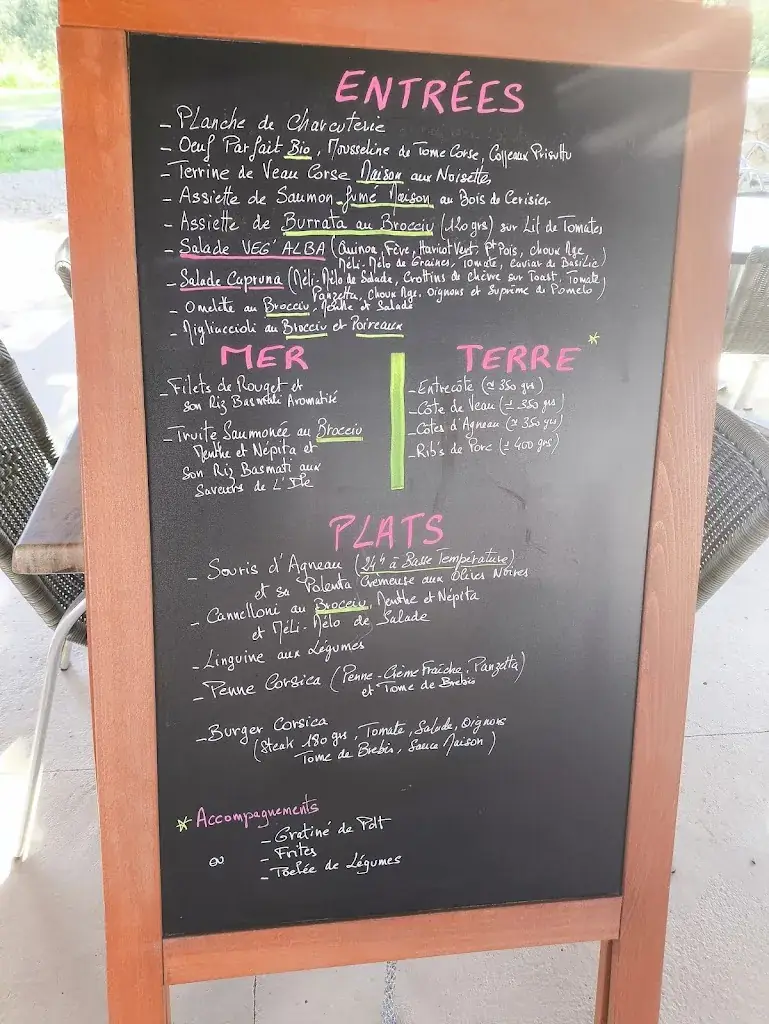 ENTRÉES
- Planche de Charcuterie
- Oeuf Parfait Bio, Mousseline de Tome Corse, Copeaux Prisuttu
- Terrine de Veau Corse Maison aux Noisettes
- Assiette de Saumon fumé Maison au Bois de Cerisier
- Assiette de Burrata au Brocciu (120 grs) sur Lit de Tomates
- Salade VEG'ALBA (Quinoa, Fève, Haricot Vert, Pt Pois, Choux Rge
Méli-Mélo de Graines, Tomate, Caviar de Basilic)
- Salade Capruna (Méli-Mélo de Salade, Crottins de Chèvre sur Toast, Tomate
Panzetta, Choux Rge, Oignons et Suprême de Pomelo)
- Omelette au Brocciu, Menthe et Salade
- Migliaccioli au Brocciu et Poireaux
MER
- Filets de Rouget et
son Riz Basmati Aromatisé
- Truite Saumonée au Brocciu
Menthe et Népita et
son Riz Basmati aux
Saveurs de L'Ile
TERRE *
- Entrecôte (± 350 grs)
- Côte de Veau (± 350 grs)
- Côtes d'Agneau (± 350 grs)
- Rib's de Porc (± 400 grs)
PLATS
- Souris d'Agneau (24h à Basse Température)
et sa Polenta Crémeuse aux Olives Noires
- Cannelloni au Brocciu, Menthe et Népita
et Méli-Mélo de Salade
- Linguine aux Légumes
- Penne Corsica (Penne-Crème Fraîche, Panzetta)
et Tome de Brebis
- Burger Corsica
(Steak 180 grs, Tomate, Salade, Oignons
Tome de Brebis, Sauce Maison)
* Accompagnements
- Gratiné de Pdt
ou - Frites
- Poêlée de Légumes